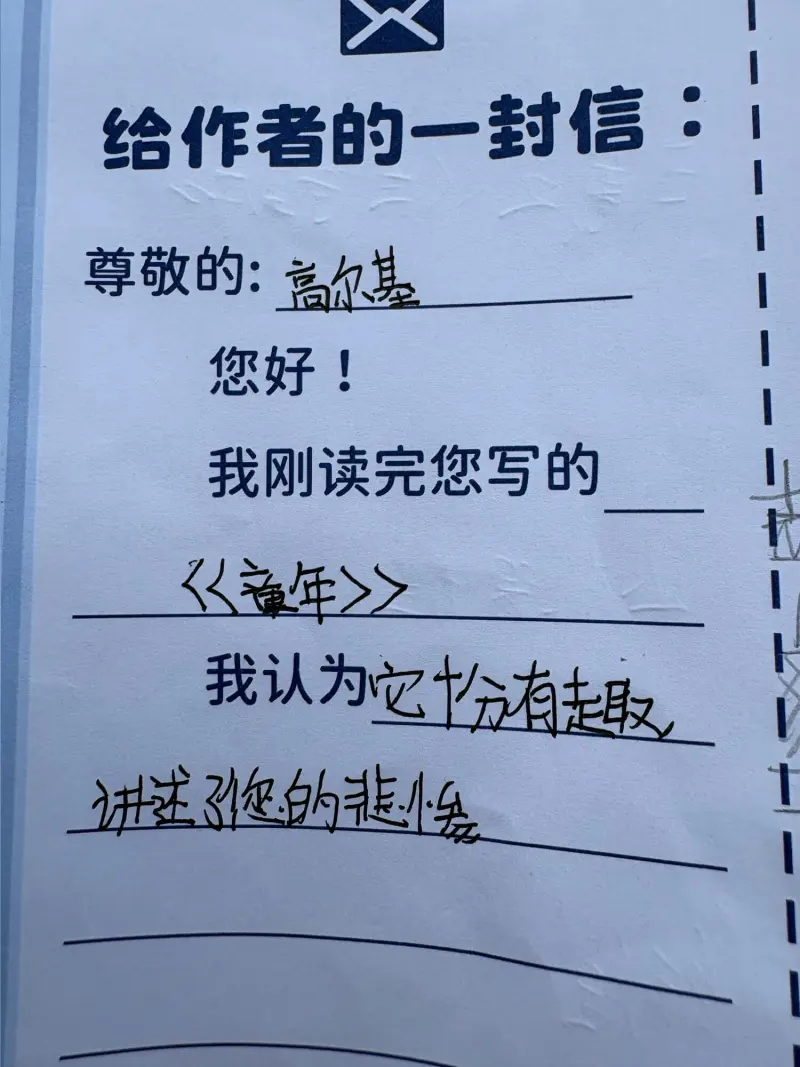 给作者的一封信：
尊敬的: 高尔基
您好！
我刚读完您写的
<<童年>>
我认为它十分有趣
讲述了您的悲惨